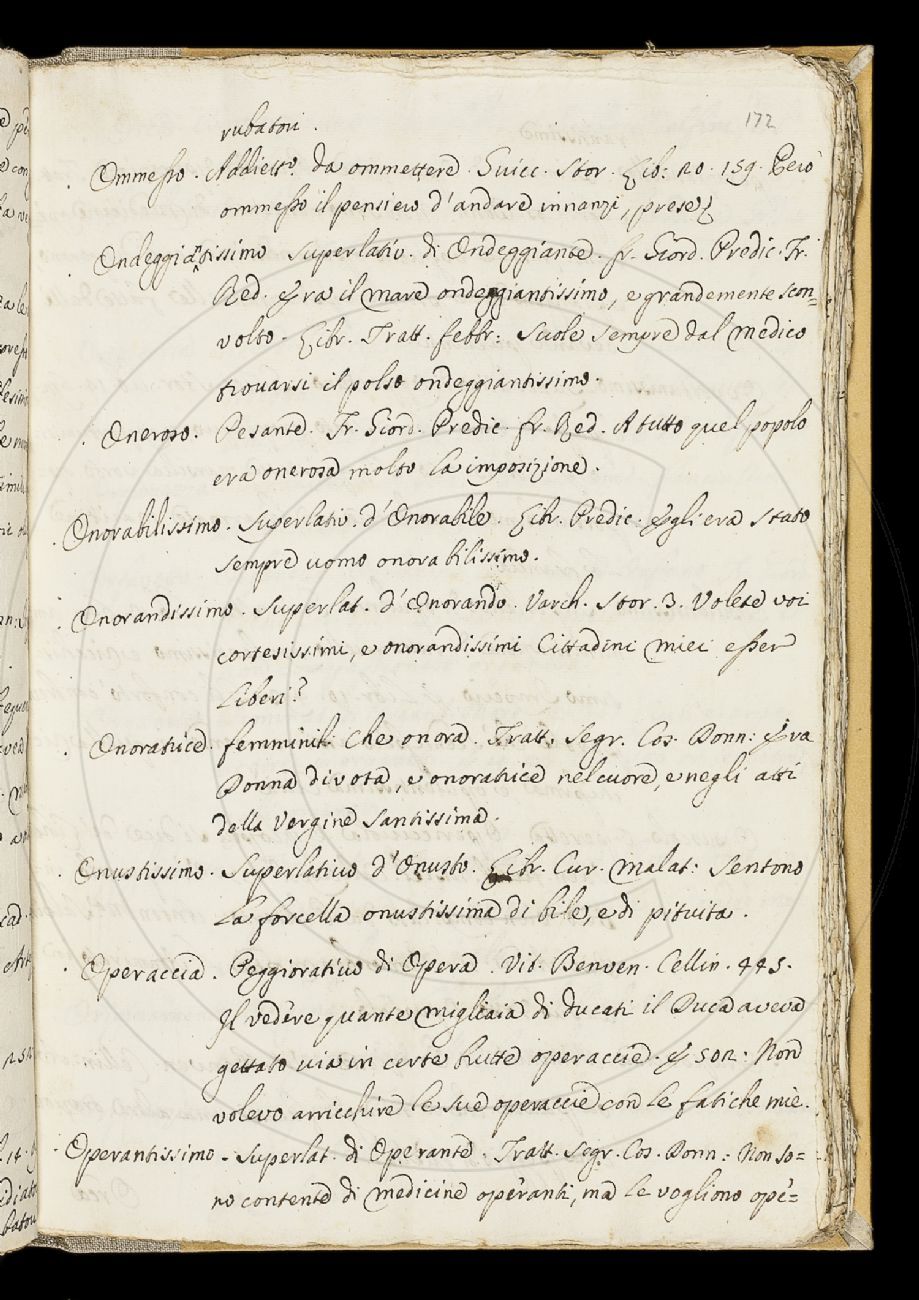 172
rubatori.
Ommesso. Addiett.º da ommettere. Guicc. Stor. Lib: 20. 159. Però
ommesso il pensiero d'andare innanzi, prese
Ondeggiãtissimo Superlativ. di Ondeggiante. fr. Giord. Predic. Fr.
Red. Era il mare ondeggiantissimo, e grandemente scon=
volto. Libr. Tratt. febbr: Suole sempre dal medico
trovarsi il polso ondeggiantissimo.
Oneroso. Pesante. Fr. Giord. Predic. fr. Red. A tutto quel popolo
era onerosa molto la imposizione.
Onorabilissimo. Superlativ. d'Onorabile. Libr. Predic. Egli era stato
sempre uomo onorabilissimo.
Onorandissimo. Superlat. d'Onorando. Varch. Stor. 3. Volete voi
cortesissimi, e onorandissimi Cittadini miei esser
Liberi?
Onoratrice. femminil. Che onora. Tratt. Segr. Cos. Donn: Era
Donna divota, e onoratrice nel cuore, e negli atti
della Vergine Santissima.
Onustissimo. Superlativo d'Onusto. Libr. Cur. malat: Sentono
La forcella onustissima di bile, e di pituita.
Operaccia. Peggiorativo di Opera. Vit. Benven. Cellin. 445.
Il vedere quante migliaia di ducati il Duca aveva
gettato via in certe brutte operaccie. E 502: Non
volevo arricchire le sue operaccie con le fatiche mie.
Operantissimo. Superlat. di Operante. Tratt. Segr. Cos. Donn: Non so=
no contente di medicine operanti, ma le vogliono ope=